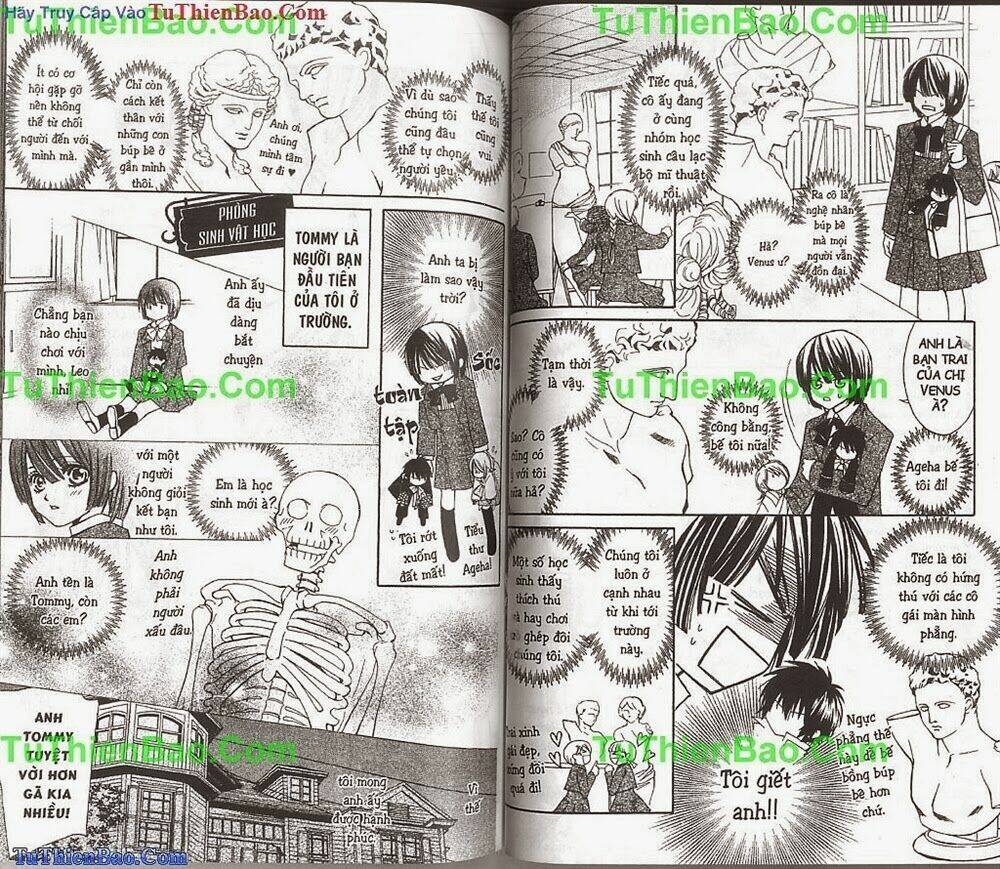 Hãy Truy Cập Vào TuThienBao.Com
TuThienBao.Com
TuThienBao.Com
Ra cô là
nghệ nhân
búp bê
mà mọi
người vẫn
đồn đại.
Hả?
Venus ư?
Tiếc quá,
cô ấy đang
ở cùng
nhóm học
sinh câu lạc
bộ mĩ thuật
rồi.
ANH LÀ
BẠN TRAI
CỦA CHỊ
VENUS
À?
Ageha bế
tôi đi!
Không
công bằng
bế tôi nữa!
Tạm thời
là vậy.
Sao? Cô
cũng có
ý với tôi
nữa hả?
TuThienBao.Com
Tiếc là tôi
không có hứng
thú với các cô
gái màn hình
phẳng.
Ngực
phẳng thế
này đã bế
bồng búp
bê hơn
chứ.
Tôi giết
anh!!
Chúng tôi
luôn ở
cạnh nhau
từ khi tới
trường
này.
Một số học
sinh thấy
thích thú
và hay chơi
trò ghép đôi
chúng tôi.
Trai xinh
gái đẹp,
xứng đôi
quá đi!
TuThienBao.Com
Thấy
thế tôi
cũng
vui.
Vì dù sao
chúng tôi
cũng đâu
thể tự chọn
người yêu.
Anh ơi,
chúng
mình tâm
sự đi ♥
Chỉ còn
cách kết
thân với
những con
búp bê ở
gần mình
thôi.
Ít có cơ
hội gặp gỡ
nên không
thể từ chối
người đến với
mình mà.
Anh ta bị
làm sao vậy
trời?
Sốc
toàn
tập
Tiểu
thư
Ageha!
Tôi rớt
xuống
đất mất!
PHÒNG
SINH VẬT HỌC
TOMMY LÀ
NGƯỜI BẠN
ĐẦU TIÊN
CỦA TÔI Ở
TRƯỜNG.
Anh ấy
đã dịu
dàng
bắt
chuyện
Chẳng bạn
nào chịu
chơi với
mình, Leo
nhỉ!
TuThienBao.Com
với một
người
không giỏi
kết bạn
như tôi.
Em là học
sinh mới à?
Anh
không
phải
người
xấu đâu.
Anh tên là
Tommy, còn
các em?
Vì
thế
tôi mong
anh ấy
được hạnh
phúc.
ANH
TOMMY
TUYỆT
VỜI HƠN
GÃ KIA
NHIỀU!
TuThienBao.Com
TuThienBao.Com